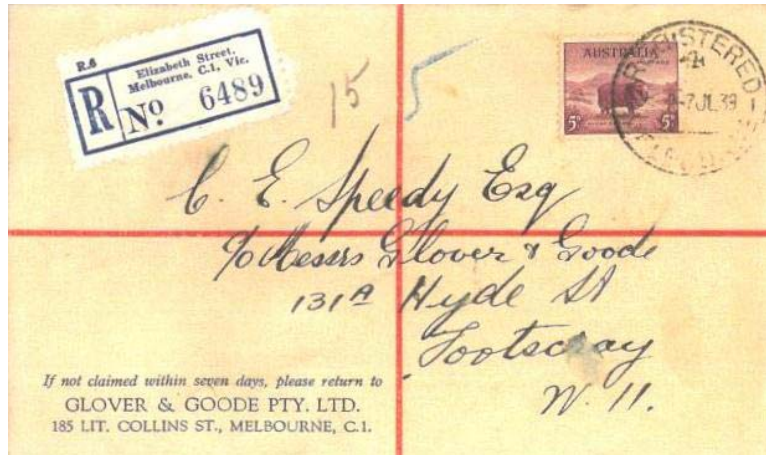 R.6
Elizabeth Street,
Melbourne. C.1, Vic.
R No 6489
15 5
AUSTRALIA
POSTAGE
5D
REGISTERED
-7JL39
C. E. Speedy Esq
c/o Messrs Glover & Goode
131A Hyde St
Footscray
W. 11.
If not claimed within seven days, please return to
GLOVER & GOODE PTY. LTD.
185 LIT. COLLINS ST., MELBOURNE, C.1.